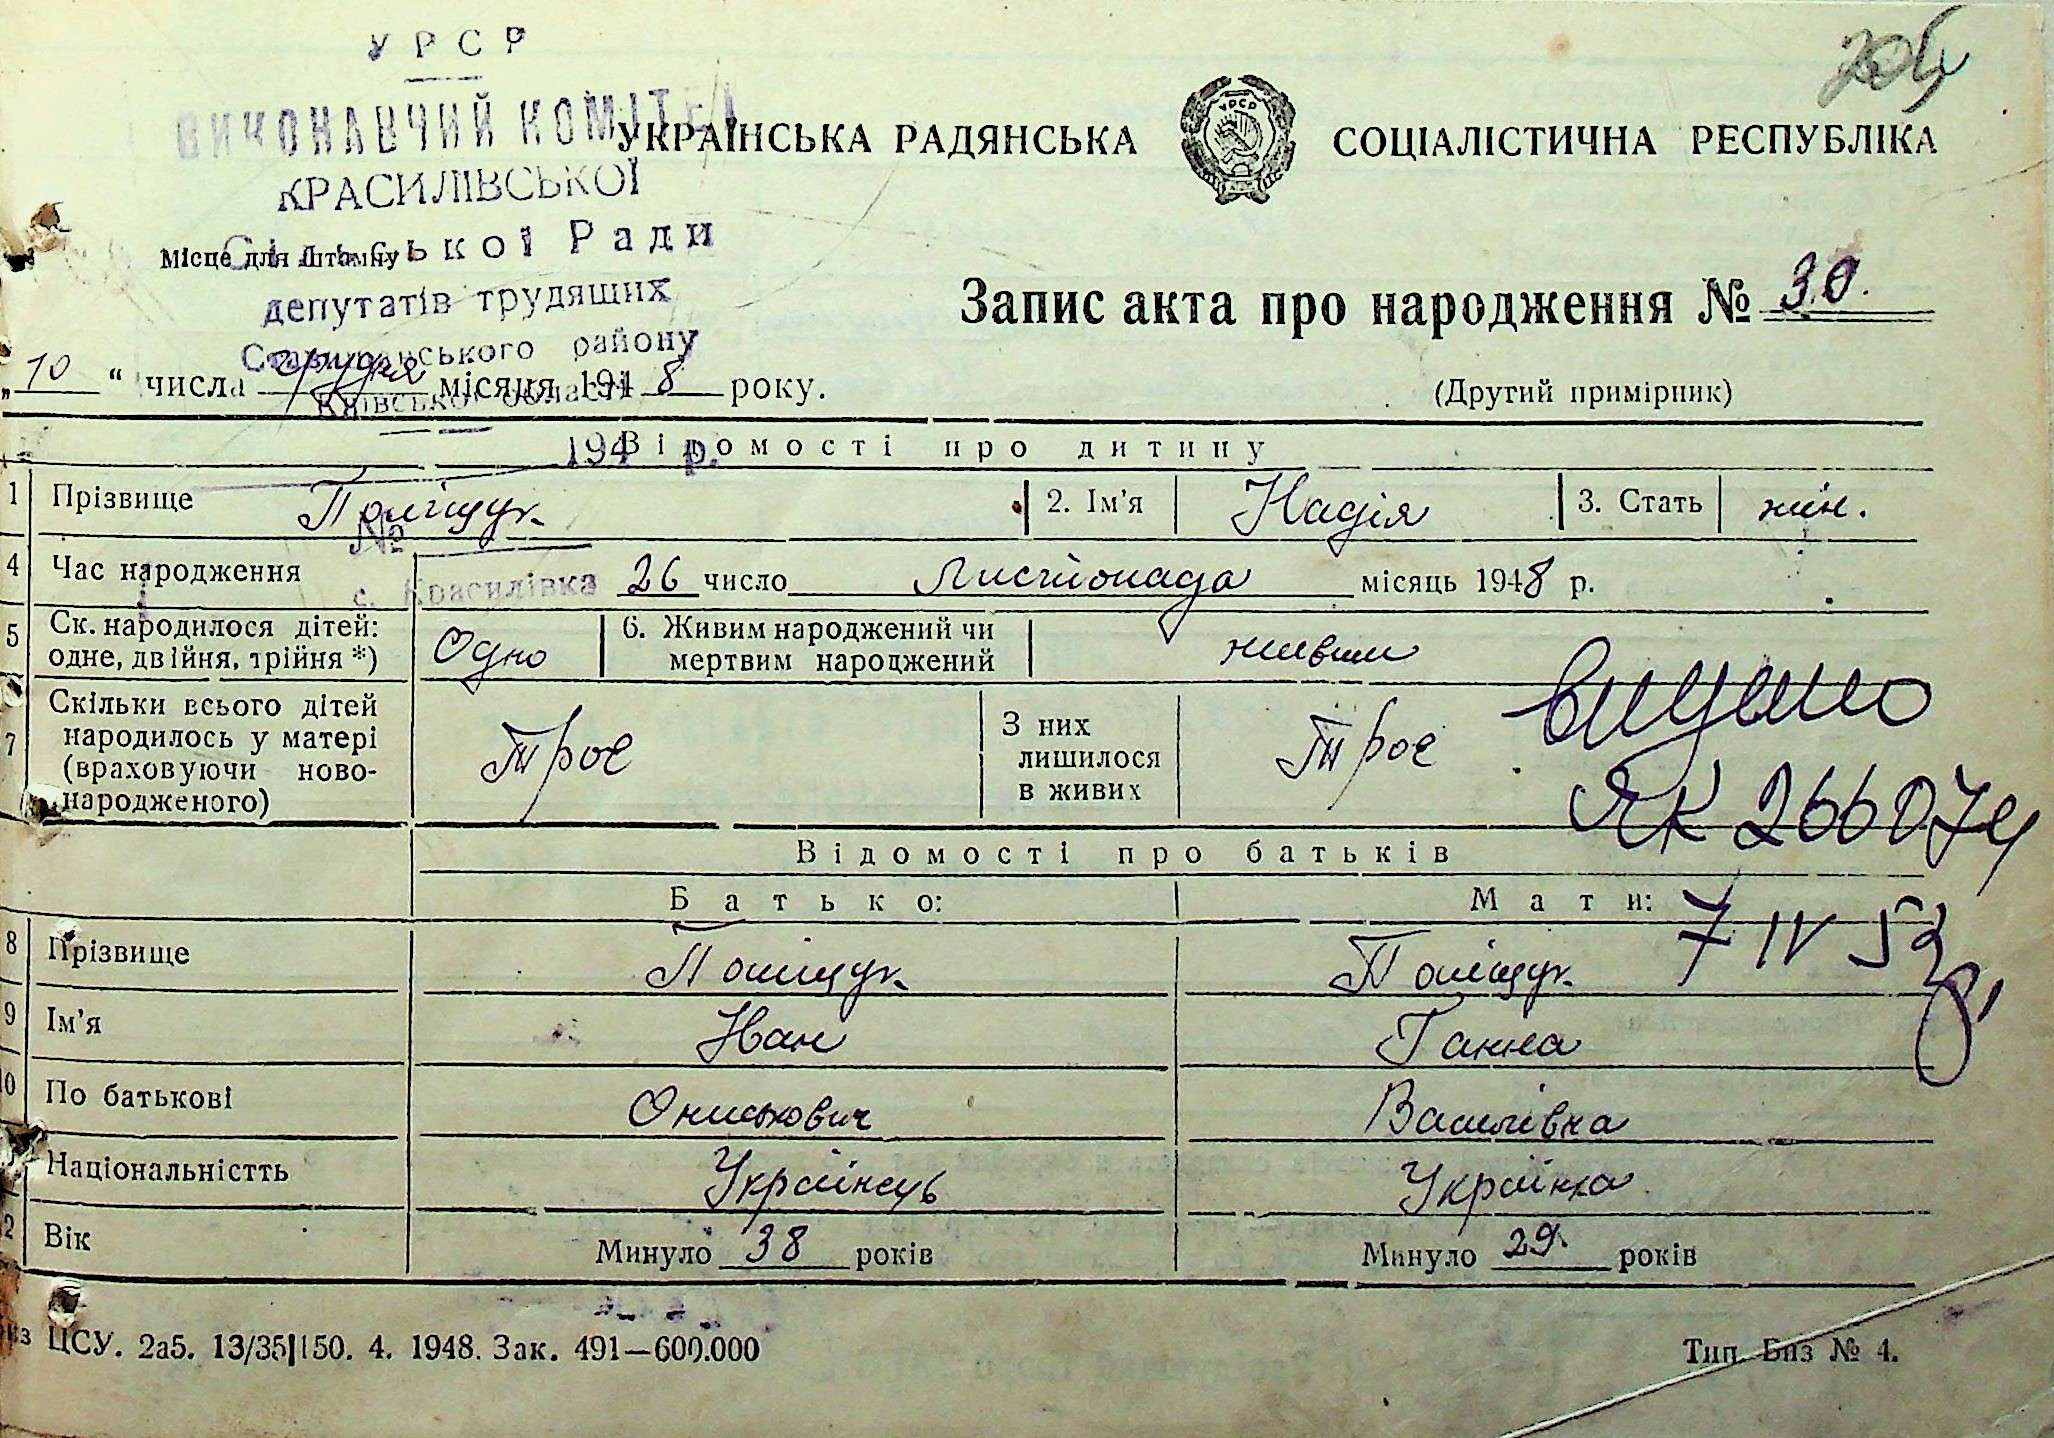 УРСР
ВИКОНАВЧИЙ КОМІТЕТ
КРАСИЛІВСЬКОЇ
Сільської Ради
депутатів трудящих
Ставищанського району
Київської області
194 р.
№
с. Красилівка
УКРАЇНСЬКА РАДЯНСЬКА СОЦІАЛІСТИЧНА РЕСПУБЛІКА
Місце для штампу
Запис акта про народження № 30.
„10“ числа грудня місяця 1948 року.
(Другий примірник)
Відомості про дитину
1 Прізвище Поліщук 2. Ім'я Надія 3. Стать жін.
4 Час народження 26 число Листопада місяць 1948 р.
5 Ск. народилося дітей: одне, двійня, трійня *) Одно 6. Живим народжений чи мертвим народжений живим
7 Скільки всього дітей народилось у матері (враховуючи новонародженого) Троє З них лишилося в живих Троє
ЯК 266074
7 IV 53
Відомості про батьків
Батько: Мати:
8 Прізвище Поліщук Поліщук
9 Ім'я Иван Ганна
10 По батьковіОниськович Василівна
Національністть Українець Українка
12 Вік Минуло 38 років Минуло 29 років
ЦСУ. 2а5. 13/35|150. 4. 1948. Зак. 491—600.000
Тип. Биз № 4.